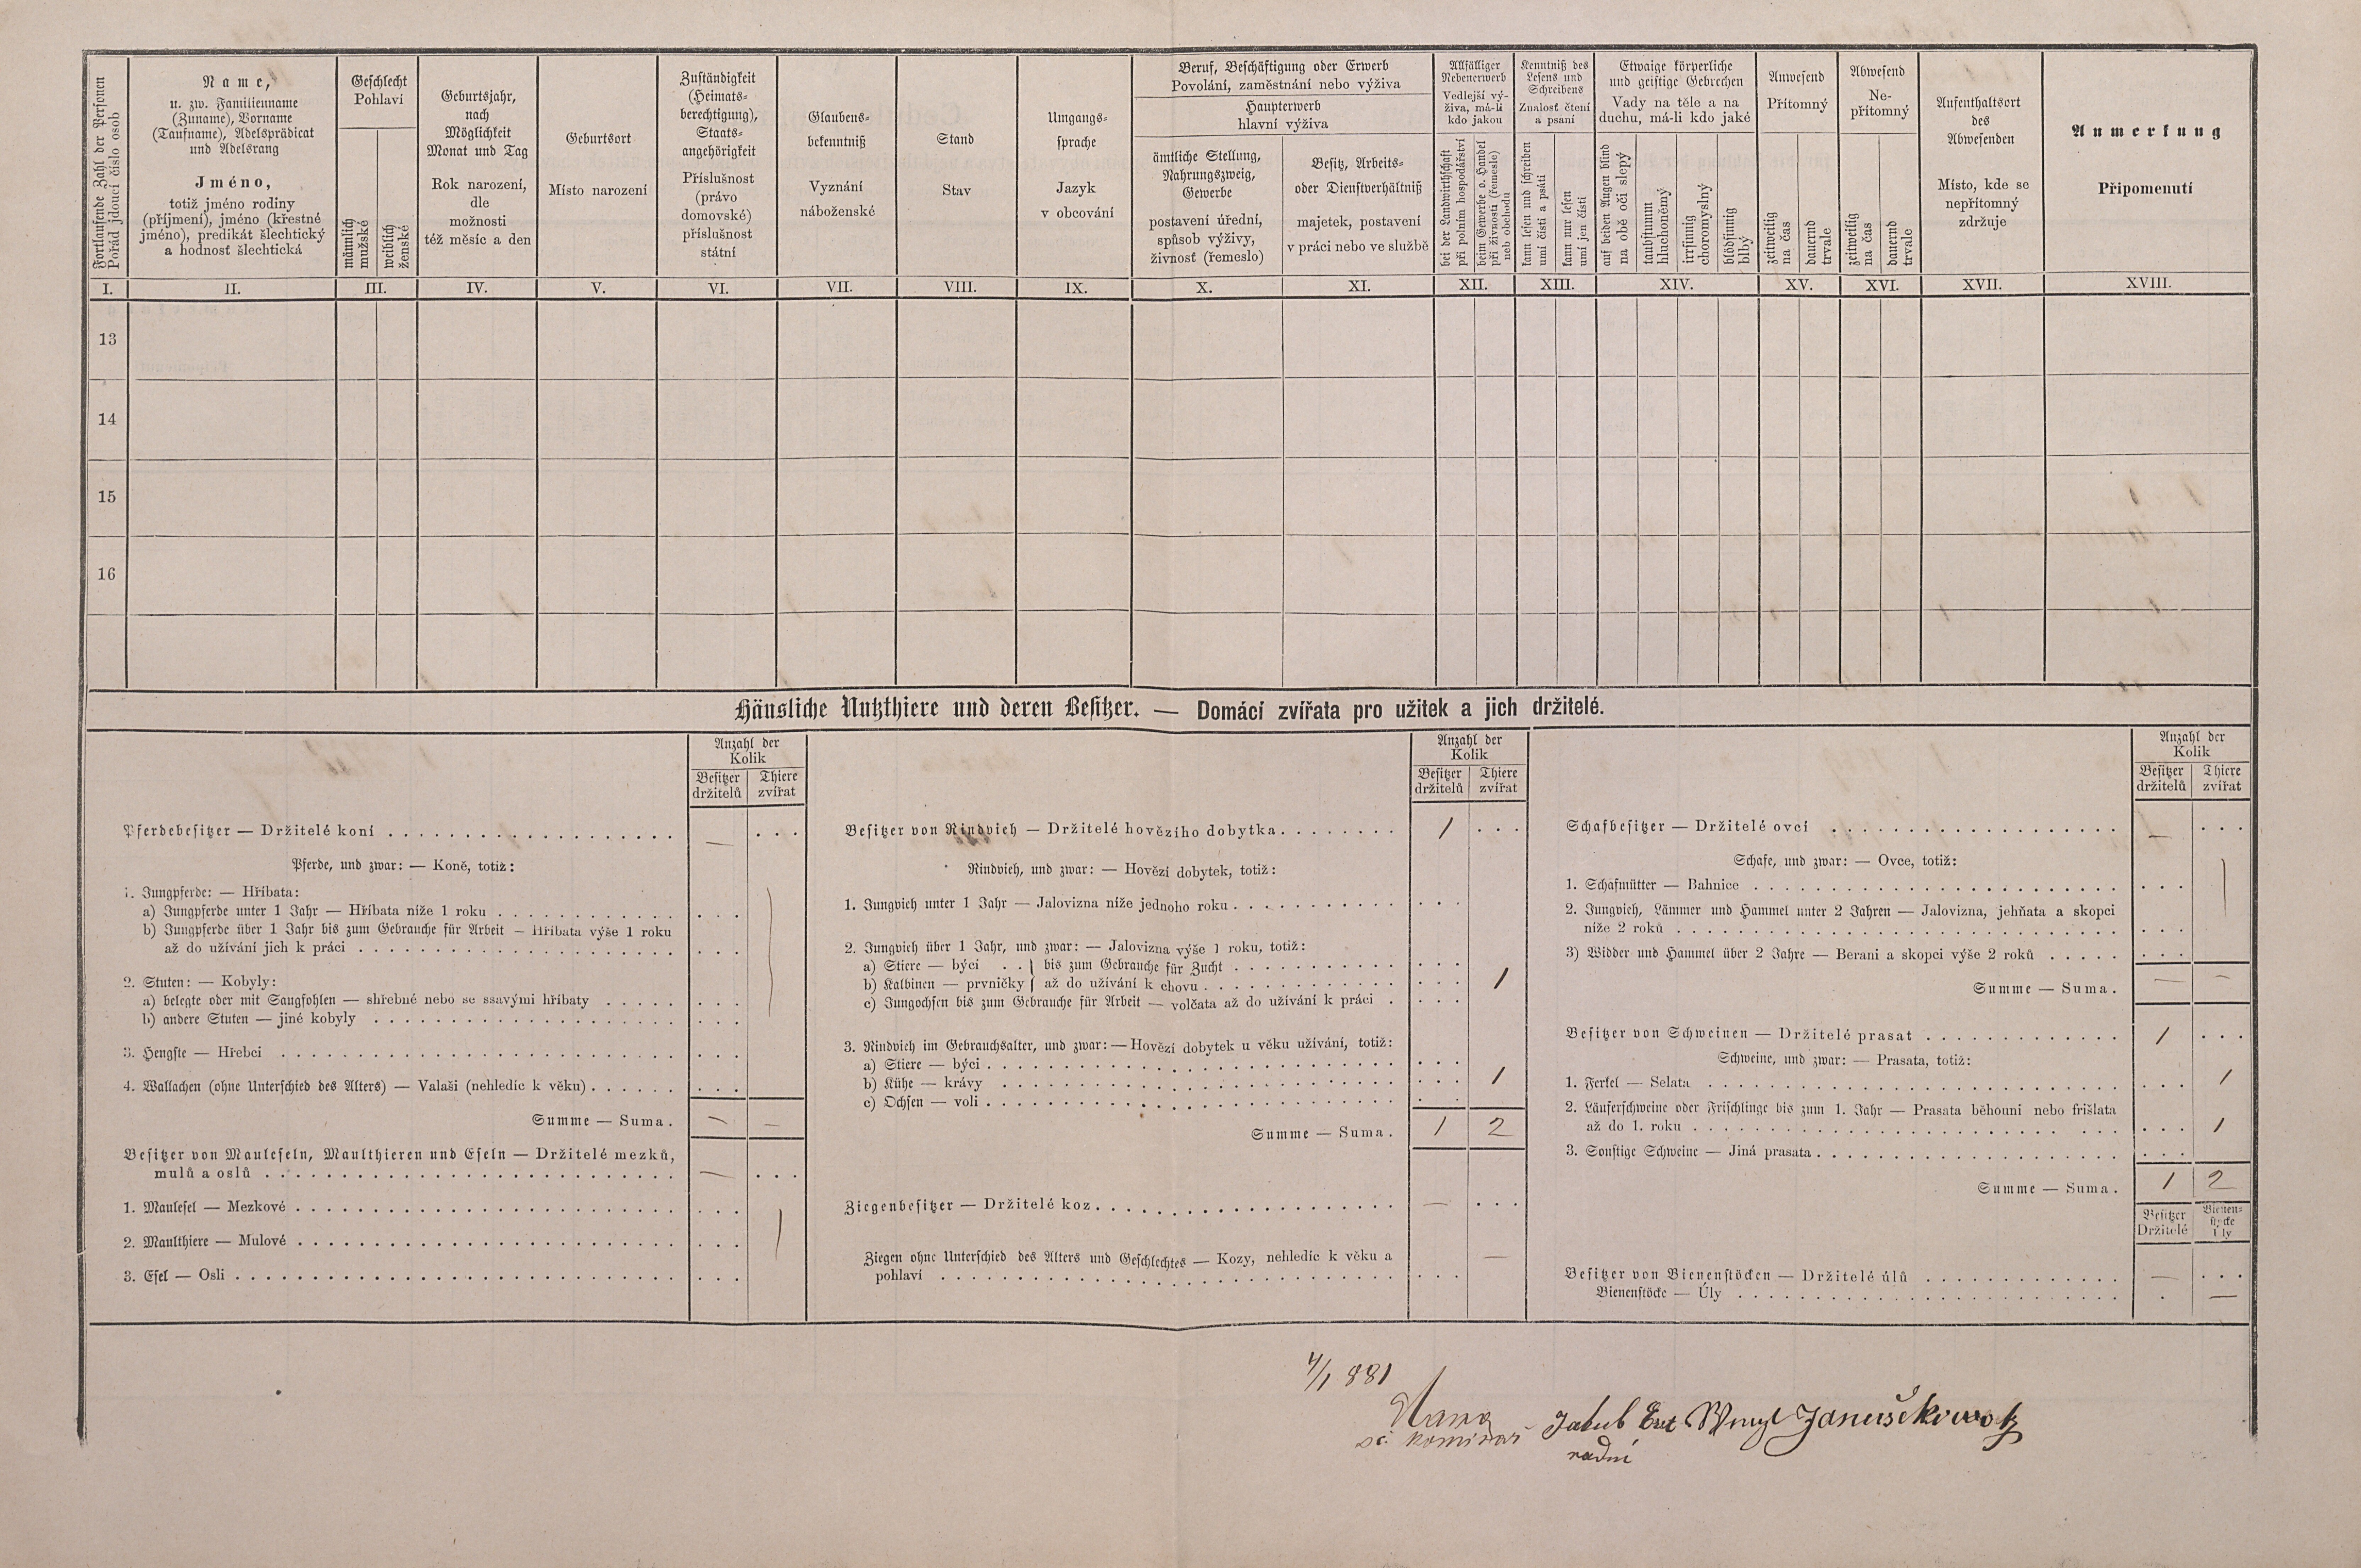 Fortlaufende Zahl der Personen
Pořád jdoucí číslo osob
Name,
u. zw. Familienname
(Zuname), Vorname
(Taufname), Adelsprädicat
und Adelsrang
Jméno,
totiž jméno rodiny
(příjmení), jméno (křestné
jméno), predikát šlechtický
a hodnosť šlechtická
Geschlecht
Pohlaví
männlich
mužské
weiblich
ženské
Geburtsjahr,
nach
Möglichkeit
Monat und Tag
Rok narození,
dle
možnosti
též měsíc a den
Geburtsort
Místo narození
Zuständigkeit
(Heimats-
berechtigung),
Staats-
angehörigkeit
Příslušnost
(právo
domovské)
příslušnost
státní
Glaubens-
bekenntniß
Vyznání
náboženské
Stand
Stav
Umgangs-
sprache
Jazyk
v obcování
Beruf, Beschäftigung oder Erwerb
Povolání, zaměstnání nebo výživa
Haupterwerb
hlavní výživa
ämtliche Stellung,
Nahrungszweig,
Gewerbe
postavení úřední,
spůsob výživy,
živnosť (řemeslo)
Besitz, Arbeits-
oder Dienstverhältniß
majetek, postavení
v práci nebo ve službě
Allfälliger
Nebenerwerb
Vedlejší vý-
živa, má-li
kdo jakou
bei der Landwirthschaft
při polním hospodářství
beim Gewerbe o. Handel
při živnosti (řemesle)
neb obchodu
Kenntniß des
Lesens und
Schreibens
Znalosť čtení
a psaní
kann lesen und schreiben
umí čísti a psáti
kann nur lesen
umí jen čísti
Etwaige körperliche
und geistige Gebrechen
Vady na těle a na
duchu, má-li kdo jaké
auf beiden Augen blind
na obě oči slepý
taubstumm
hluchoněmý
irrsinnig
choromyslný
blödsinnig
blbý
Anwesend
Přítomný
zeitweilig
na čas
dauernd
trvale
Abwesend
Ne-
přítomný
zeitweilig
na čas
dauernd
trvale
Aufenthaltsort
des
Abwesenden
Místo, kde se
nepřítomný
zdržuje
Anmerkung
Připomenutí
I. II. III. IV. V. VI. VII. VIII. IX. X. XI. XII. XIII. XIV. XV. XVI. XVII. XVIII.
13
14
15
16
Häusliche Nutzthiere und deren Besitzer. — Domácí zvířata pro užitek a jich držitelé.
Anzahl der
Kolik
Besitzer Thiere
držitelů zvířat
Pferdebesitzer — Držitelé koní . . . —
Pferde, und zwar: — Koně, totiž:
1. Jungpferde: — Hříbata:
a) Jungpferde unter 1 Jahr — Hříbata níže 1 roku
b) Jungpferde über 1 Jahr bis zum Gebrauche für Arbeit — Hříbata výše 1 roku
až do užívání jich k práci
2. Stuten: — Kobyly:
a) belegte oder mit Saugfohlen — shřebné nebo se ssavými hříbaty
b) andere Stuten — jiné kobyly
3. Hengste — Hřebci
4. Wallachen (ohne Unterschied des Alters) — Valaši (nehledíc k věku)
Summe — Suma. — —
Besitzer von Mauleseln, Maulthieren und Eseln — Držitelé mezků,
mulů a oslů . . . —
1. Maulesel — Mezkové
2. Maulthiere — Mulové
3. Esel — Osli
Anzahl der
Kolik
Besitzer Thiere
držitelů zvířat
Besitzer von Rindvieh — Držitelé hovězího dobytka . . . 1
Rindvieh, und zwar: — Hovězí dobytek, totiž:
1. Jungvieh unter 1 Jahr — Jalovizna níže jednoho roku
2. Jungvieh über 1 Jahr, und zwar: — Jalovizna výše 1 roku, totiž:
a) Stiere — býci . . } bis zum Gebrauche für Zucht
b) Kalbinen — prvničky } až do užívání k chovu . . . 1
c) Jungochsen bis zum Gebrauche für Arbeit — volčata až do užívání k práci
3. Rindvieh im Gebrauchsalter, und zwar: — Hovězí dobytek u věku užívání, totiž:
a) Stiere — býci
b) Kühe — krávy . . . 1
c) Ochsen — voli
Summe — Suma. 1 2
Ziegenbesitzer — Držitelé koz . . . —
Ziegen ohne Unterschied des Alters und Geschlechtes — Kozy, nehledíc k věku a
pohlaví . . . —
Anzahl der
Kolik
Besitzer Thiere
držitelů zvířat
Schafbesitzer — Držitelé ovcí . . . —
Schafe, und zwar: — Ovce, totiž:
1. Schafmütter — Bahnice
2. Jungvieh, Lämmer und Hammel unter 2 Jahren — Jalovizna, jehňata a skopci
níže 2 roků
3) Widder und Hammel über 2 Jahre — Berani a skopci výše 2 roků
Summe — Suma. — —
Besitzer von Schweinen — Držitelé prasat . . . 1
Schweine, und zwar: — Prasata, totiž:
1. Ferkel — Selata . . . 1
2. Läuferschweine oder Frischlinge bis zum 1. Jahr — Prasata běhouni nebo frišlata
až do 1. roku . . . 1
3. Sonstige Schweine — Jiná prasata
Summe — Suma. 1 2
Besitzer Bienen-
stöcke
Držitelé Úly
Besitzer von Bienenstöcken — Držitelé úlů . . . —
Bienenstöcke — Úly . . . —
4/1 881
sč. komisař
Jakub
radní